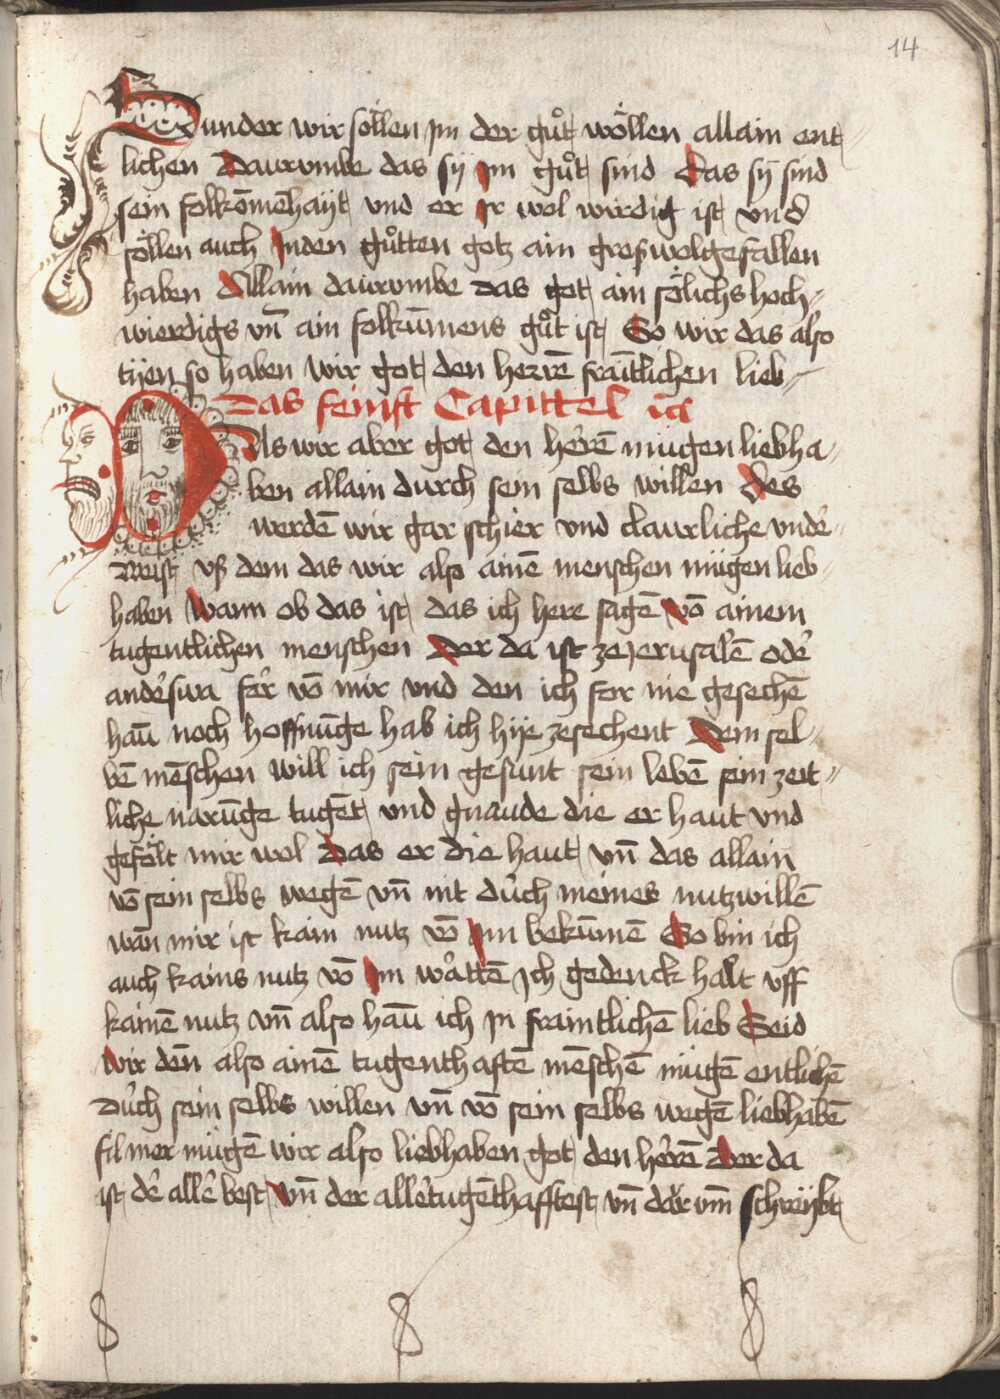 14
Sunder wir söllen jm der guͦt wöllen allain ent-
lichen Daurumbe das sÿ jm guͦt sind Das sÿ sind
sein folkōmēhayt und er Jr wol wirdig ist und
söllen auch Inden guͦtten gotz ain groß wolgefallen
haben Allain daurumbe das got ain sölichs hoch-
wierdigs vn̄ ain folkūmens guͦt ist So wir das also
tÿen so haben wir got den herrē fraītlichen lieb
Das feinft Capittel ist
Das wir aber got den herrē mügen liebha-
ben allain durch sein selbs willen des
werdē wir gar schier und claurliche unde-
weist uß dem das wir also ainē menschen mügen lieb-
haben Wann ob das ist das ich here sagē vō ainem
tugentlichen menschen Der da ist ze Jerusalē ode᷑
ande᷑swa fer vō mir und den ich for nie gesechē
haū noch hoffnūge hab ich hÿe zesechent Dem sel-
bē mēschen will ich sein gesunt sein lebē sein zeit-
liche narūge tugēt und gnaude die er haut und
gefölt mir wol Das er die haut vn̄ das allain
vō sein selbs wegē vn̄ nit du᷑ch meines nutz willē
wān mir ist kain nutz vō Im bekūmē So bin ich
auch kains nutz vō Im waͦttē Jch gedenck halt uff
kainē nutz vn̄ also haū ich jn fraintlichē lieb Seid
Wir dēn also ainē tugenthaftē mēschē mügē entlichē
Du᷑ch sein selbs willen vn̄ vō sein selbs wegē liebhabē
fil mer mügē wir also liebhaben got den herrē Der da
ist de᷑ alle᷑ best Vn̄ der alle᷑tugēthafftest vn̄ dar um̄ schreÿbt